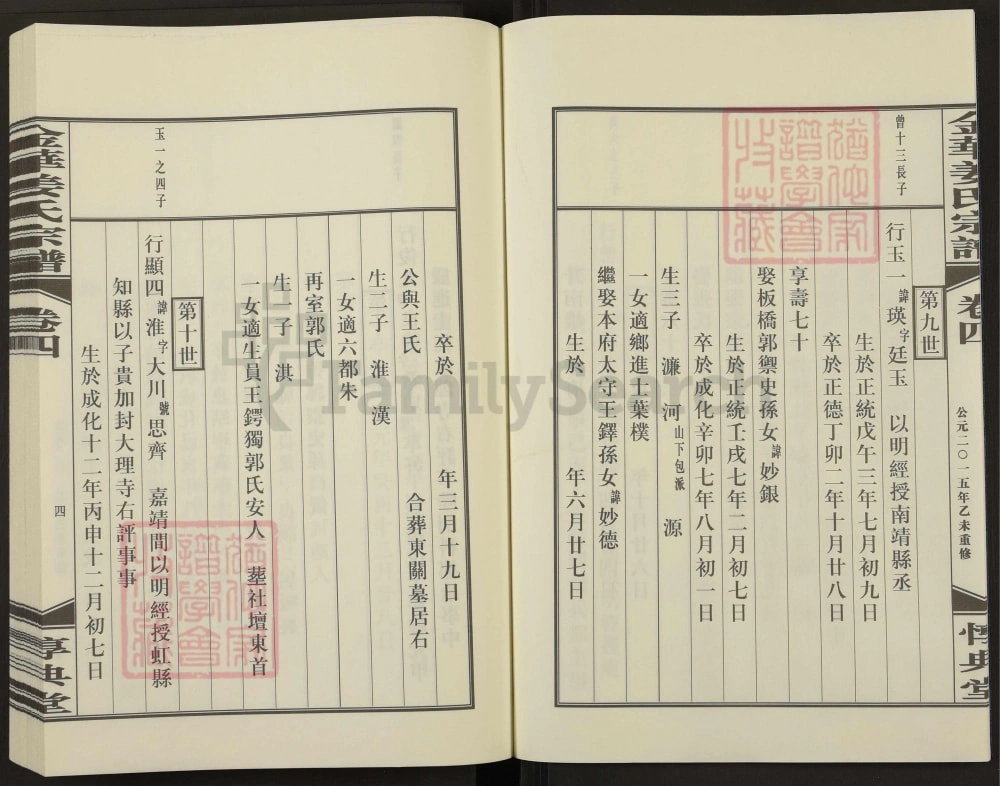 金華姜氏宗譜
卷四
公元二〇一五年乙未重修
惇典堂
第九世
曾十三長子
行玉一 諱瑛字廷玉 以明經授南靖縣丞
生於正統戊午三年七月初九日
卒於正德丁卯二年十月廿八日
享壽七十
娶板橋郭禦史孫女諱妙銀
生於正統壬戌七年二月初七日
卒於成化辛卯七年八月初一日
生三子 濂 河山下包派 源
一女適鄉進士葉樸
繼娶本府太守王鐸孫女諱妙德
生於 年六月廿七日
卒於 年三月十九日
公與王氏 合葬東關墓居右
生二子 淮 漢
一女適六都朱
再室郭氏
生一子 淇
一女適生員王鍔獨郭氏安人 塟社壇東首
第十世
玉一之四子
行顯四諱淮字大川號思齊 嘉靖間以明經授虹縣
知縣以子貴加封大理寺右評事事
生於成化十二年丙申十二月初七日
金華姜氏宗譜
卷四
四
惇典堂
FamilySearch